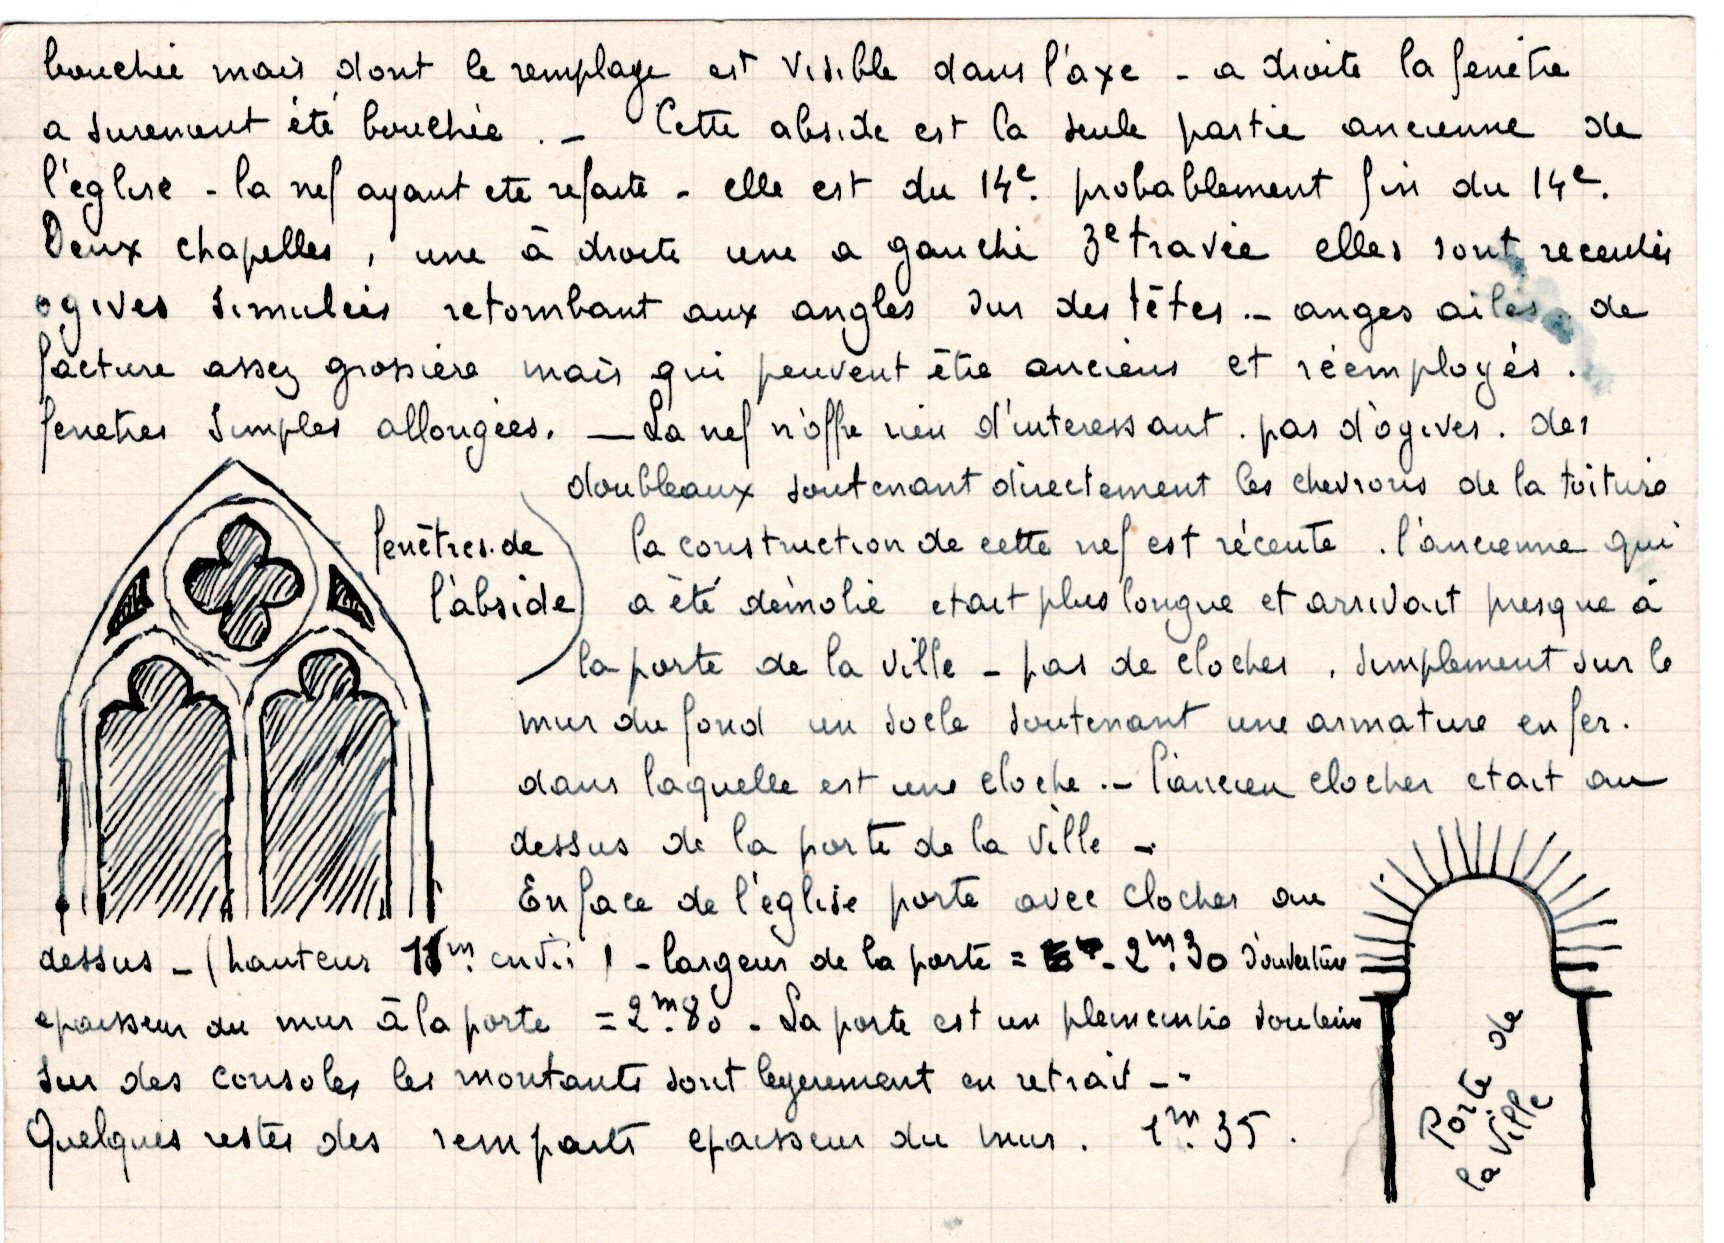 bouchée mais dont le remplage est visible dans l'axe - a droite la fenêtre
a surement été bouchée . - Cette abside est la seule partie ancienne de
l'église - la nef ayant eté refaite - elle est du 14e. probablement fin du 14e.
Deux chapelles, une à droite une a gauche 3e travée elles sont recentes
ogives simulées retombant aux angles sur des têtes .- anges ailés. de
facture assez grossière mais qui peuvent être anciens et réemployés .
fenetres simples allongées. — La nef n'offre rien d'interessant . pas d'ogives . des
doubleaux soutenant directement les chevrons de la toiture
fenêtres de
l'abside
la construction de cette nef est récente . l'ancienne qui
a été démolie etait plus longue et arrivait presque à
la porte de la ville - pas de clocher , simplement sur le
mur du fond un socle soutenant une armature en fer .
dans laquelle est une cloche .- l'ancien clocher etait au
dessus de la porte de la ville -
En face de l'église porte avec clocher au
dessus - (hauteur 11m. - largeur de la porte = - 2m.30 d'ouverture
epaisseur du mur à la porte = 2m.80 - La porte est un plein cintre
sur des consoles les montants sont legerement en retrait --
Quelques restes des remparts epaisseur du mur . 1m.35 .
Porte de
la ville